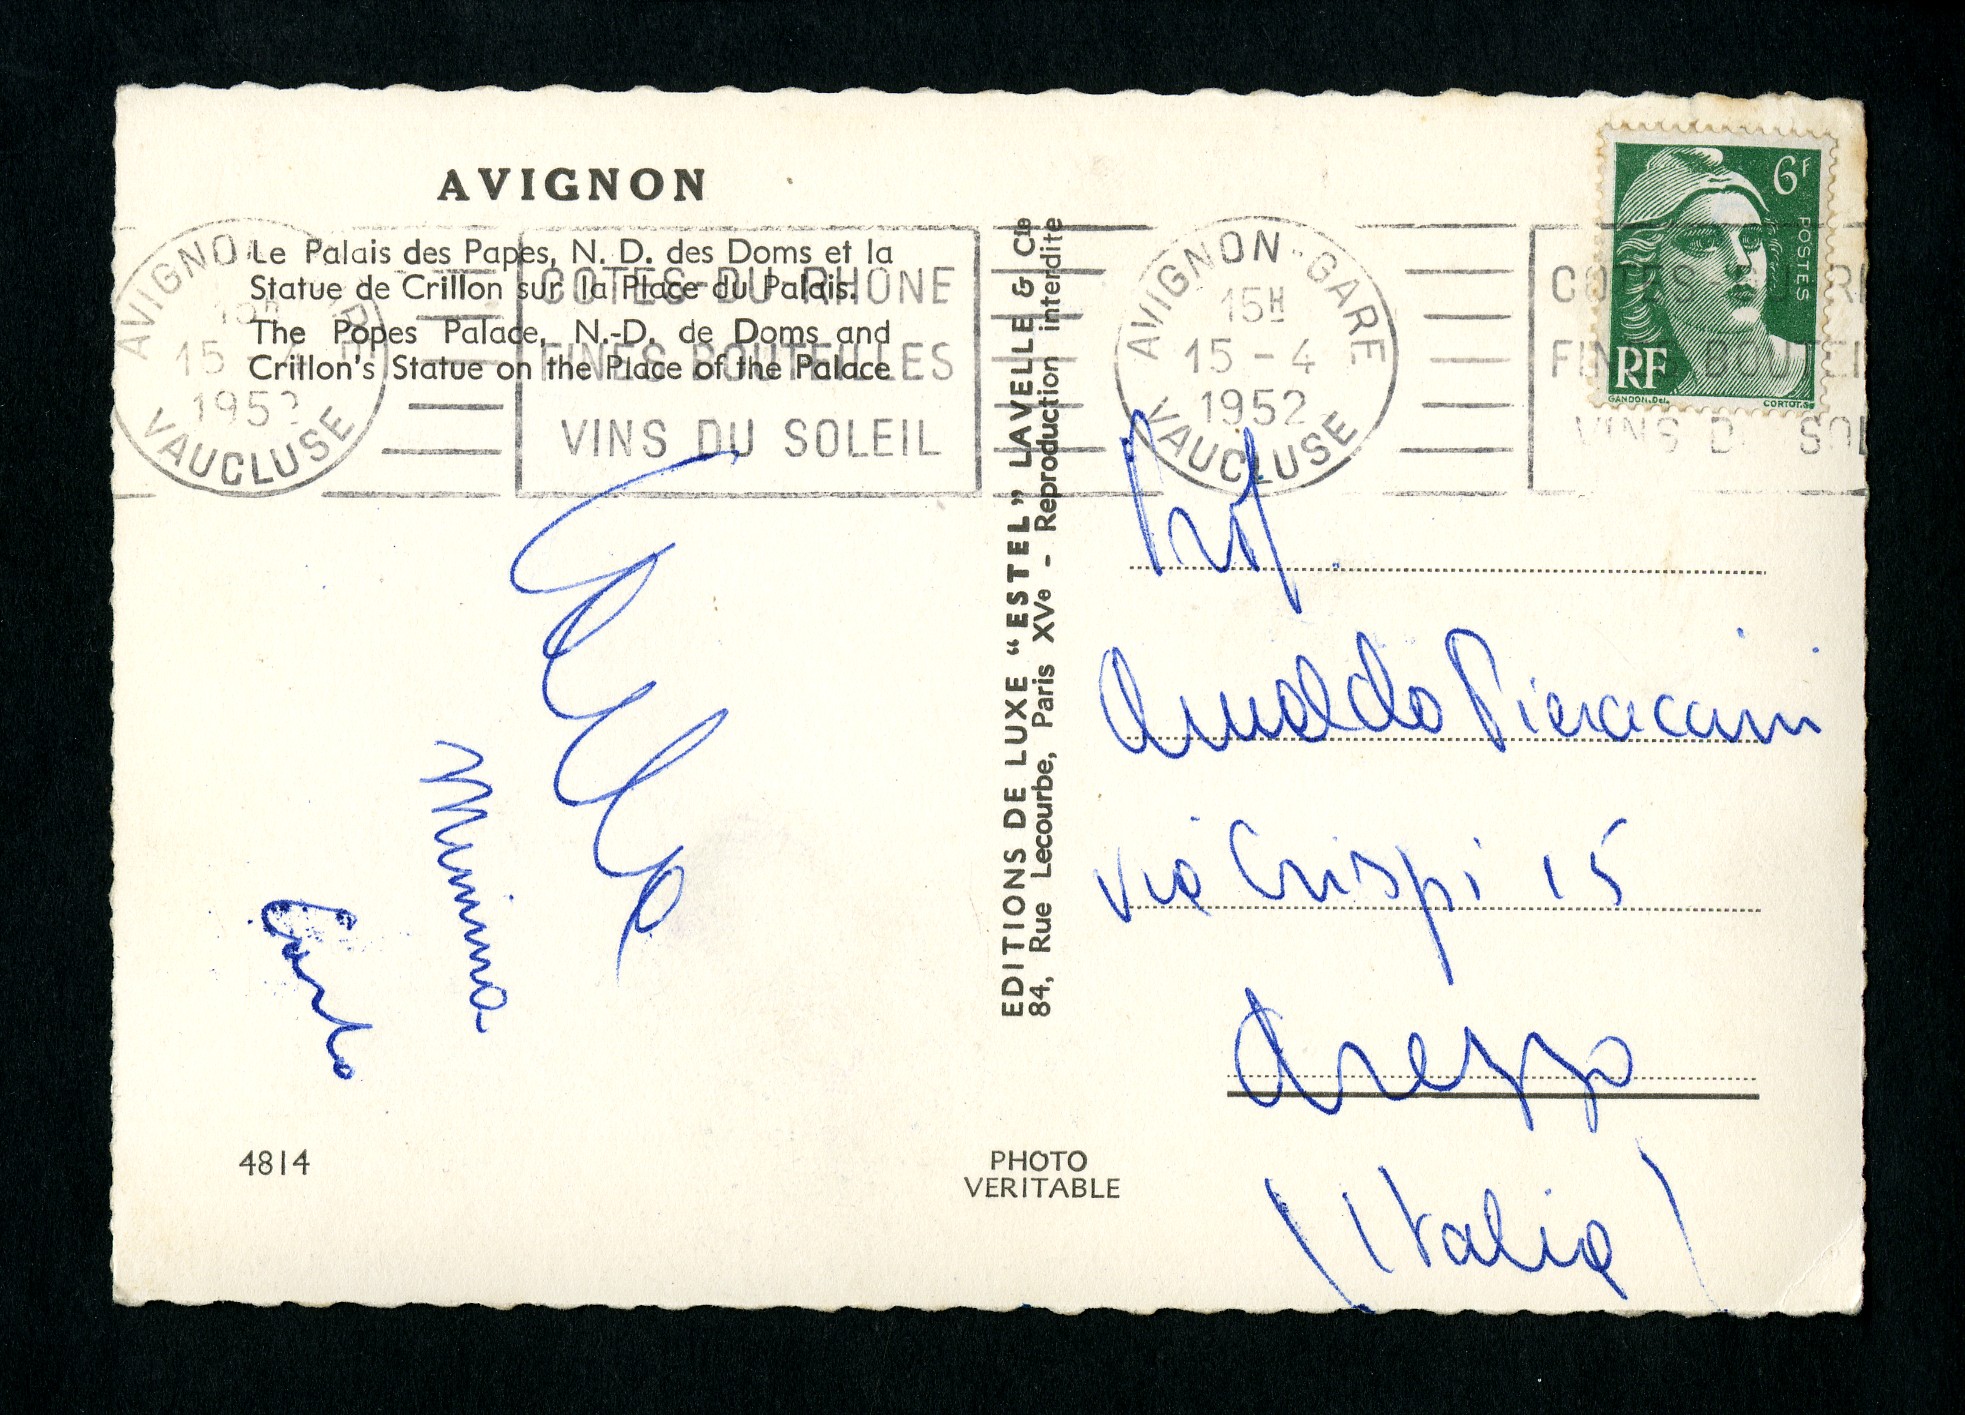 AVIGNON
Le Palais des Papes, N. D. des Doms et la
Statue de Crillon sur la Place du Palais.
The Popes Palace, N.-D. de Doms and
Crillon's Statue on the Place of the Palace
AVIGNON
15
1952
VAUCLUSE
COTES-DU-RHONE
FINES BOUTEILLES
VINS DU SOLEIL
Mimma
Carlo
4814
EDITIONS DE LUXE “ESTEL” LAVELLE & Cie
84, Rue Lecourbe, Paris XVe - Reproduction interdite
PHOTO
VERITABLE
AVIGNON-GARE
15H
15-4
1952
VAUCLUSE
6F
POSTES
RF
GANDON.Del.
CORTOT.Sc
Prof.
Arnaldo Pieraccini
via Crispi 15
Arezzo
(Italia)